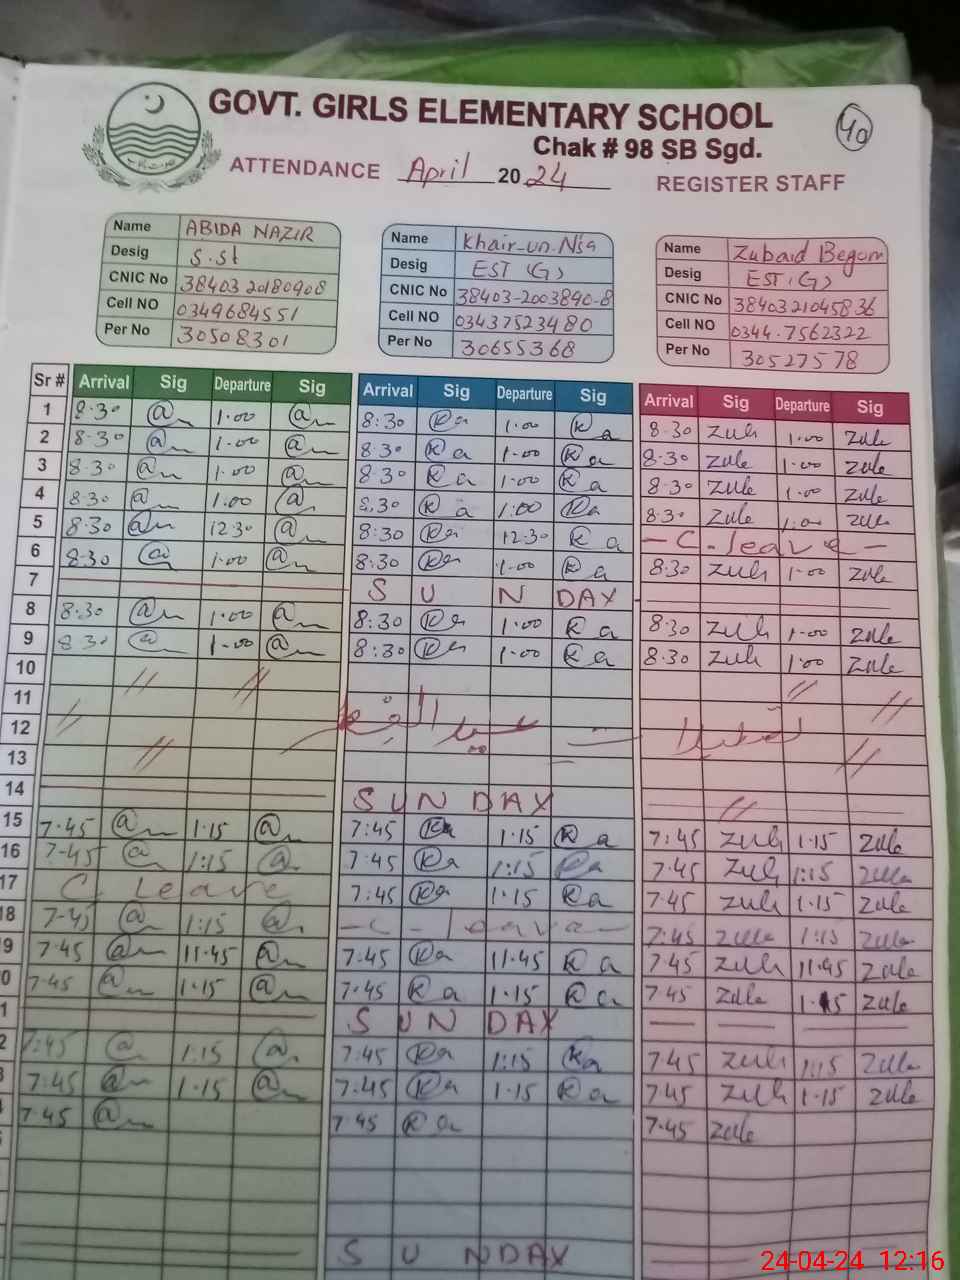 GOVT. GIRLS ELEMENTARY SCHOOL
40
Chak # 98 SB Sgd.
ATTENDANCE April 2024 REGISTER STAFF
Name ABIDA NAZIR
Desig S.St
CNIC No 38403 20180908
Cell NO 0349684551
Per No 30508301
Name Khair-un-Nsa
Desig EST (G)
CNIC No 38403-2003890-8
Cell NO 03437523480
Per No 30655368
Name Zubaid Begum
Desig EST (G)
CNIC No 3840321045836
Cell NO 0344.7562322
Per No 30527578
Sr # Arrival Sig Departure Sig Arrival Sig Departure Sig Arrival Sig Departure Sig
1 8.30 1.00 8:30 Ka 1.00 Ka 8.30 Zule 1.00 Zule
2 8.30 1.00 8.30 Ka 1.00 Ka 8.30 Zule 1.00 Zule
3 8.30 1.00 8.30 Ka 1.00 Ka 8.30 Zule 1.00 Zule
4 8.30 1.00 8.30 Ka 1:00 Ka 8.30 Zule 1.00 Zule
5 8.30 12.30 8:30 Ka 12.30 Ka - C - leave -
6 8.30 1.00 8:30 Ka 1.00 Ka 8.30 Zule 1.00 Zule
7 S U N DAY
8 8.30 1.00 8:30 Ka 1.00 Ka 8.30 Zule 1.00 Zule
9 8.30 1.00 8:30 Ka 1.00 Ka 8.30 Zule 1.00 Zule
10 // // //
11 //
12 // عید الفطر تعطیلات
13 // //
14 S U N DAY //
15 7.45 1.15 7:45 Ka 1.15 Ka 7:45 Zule 1.15 Zule
16 7-45 1:15 7:45 Ka 1:15 Ka 7.45 Zule 1:15 Zule
17 C. Leave 7.45 Ka 1.15 Ka 7.45 Zule 1.15 Zule
18 7-45 1:15 - C - leave - 7:45 Zule 1:15 Zule
9 7.45 11.45 7.45 Ka 11.45 Ka 7.45 Zule 11.45 Zule
0 7.45 1.15 7.45 Ka 1.15 Ka 7.45 Zule 1.15 Zule
1 S U N DAY
2 7:45 1:15 7.45 Ka 1:15 Ka 7.45 Zule 1:15 Zule
3 7.45 1.15 7.45 Ka 1.15 Ka 7.45 Zule 1.15 Zule
4 7.45 7.45 Ka 7.45 Zule
S U NDAY
24-04-24 12:16